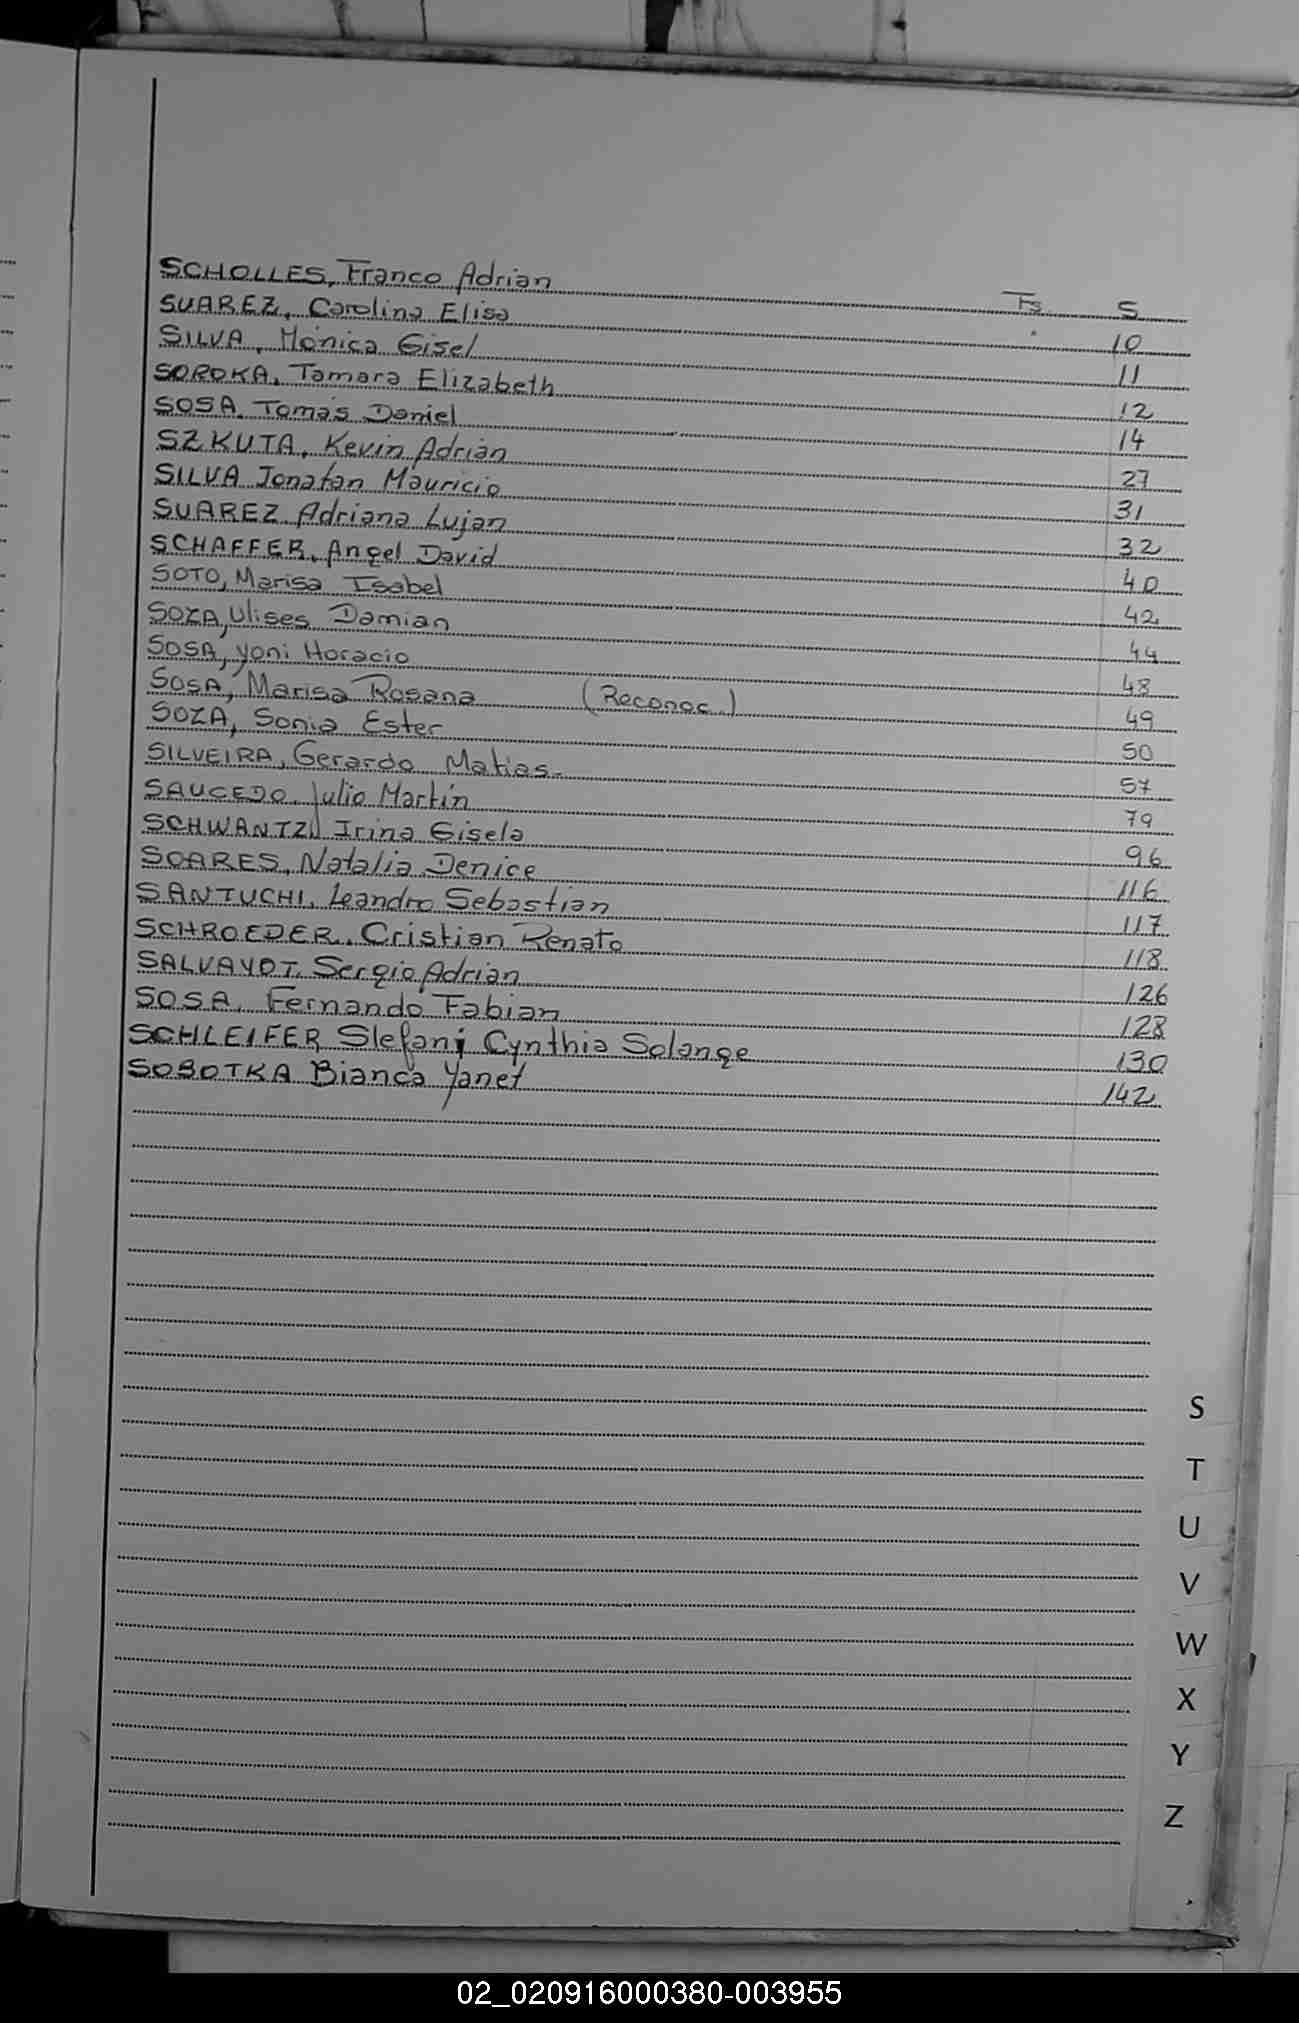 SCHOLLES, Franco Adrian Fs. 5
SUAREZ, Carolina Elisa 10
SILVA, Mónica Gisel 11
SOROKA, Tamara Elizabeth 12
SOSA, Tomás Daniel 14
SZKUTA, Kevin Adrián 27
SILVA Jonatan Mauricio 31
SUAREZ, Adriana Lujan 32
SCHAFFER, Angel David 40
SOTO, Marisa Isabel 42
SOZA, Ulises Damian 44
SOSA, Yoni Horacio 48
SOSA, Marisa Rosana (Reconoc.) 49
SOZA, Sonia Ester 50
SILVEIRA, Gerardo Matias. 57
SAUCEDO, Julio Martín 79
SCHWANTZ, Irina Gisela 96
SOARES, Natalia Denice 116
SANTUCHI, Leandro Sebastian 117
SCHROEDER, Cristian Renato 118
SALVAYOT, Sergio Adrián 126
SOSA, Fernando Fabian 128
SCHLEIFER Stefani Cynthia Solange 130
SOBOTKA Bianca Yanet 142
S
T
U
V
W
X
Y
Z
02_020916000380-003955